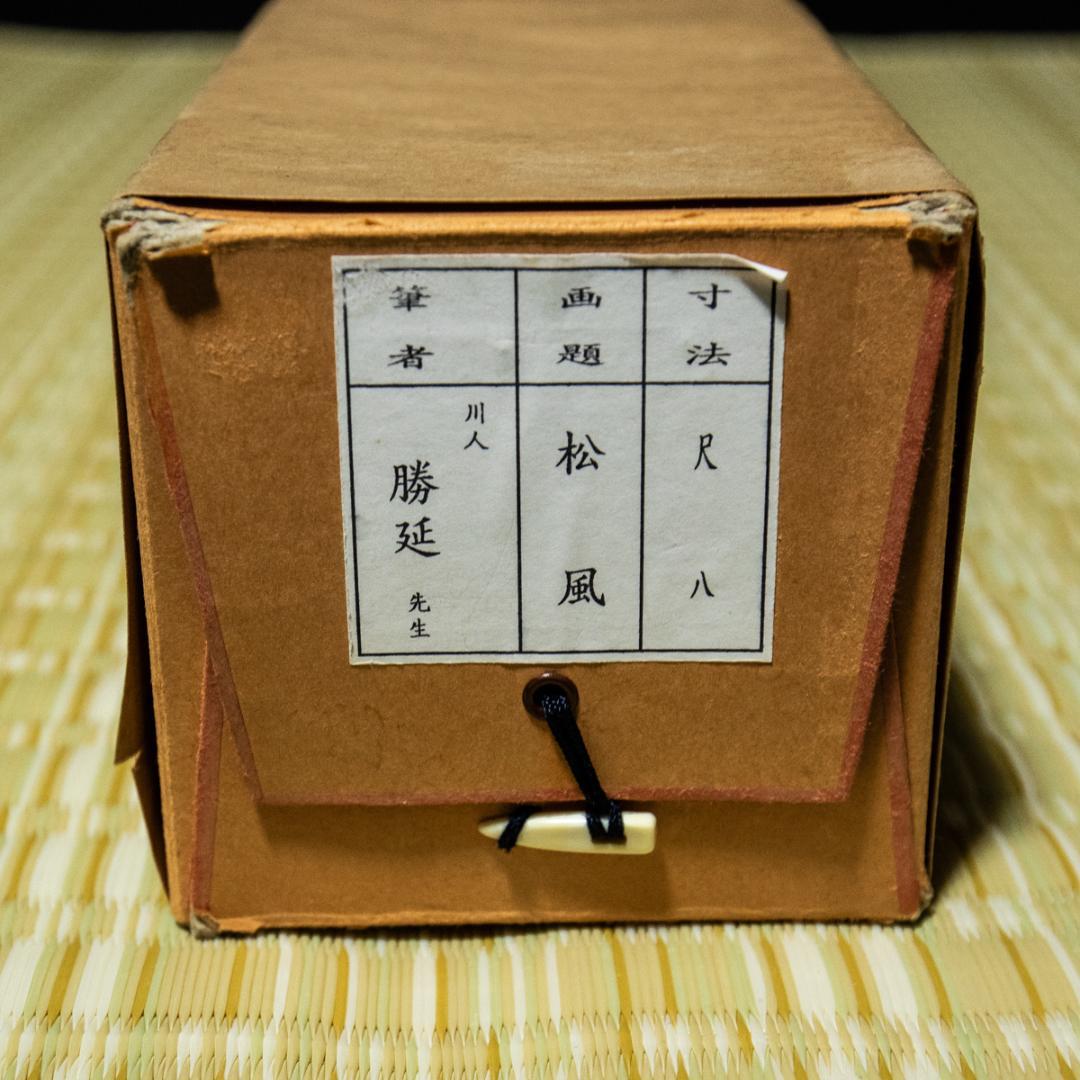 寸法
尺八
画題
松風
筆者
川人
勝延
先生